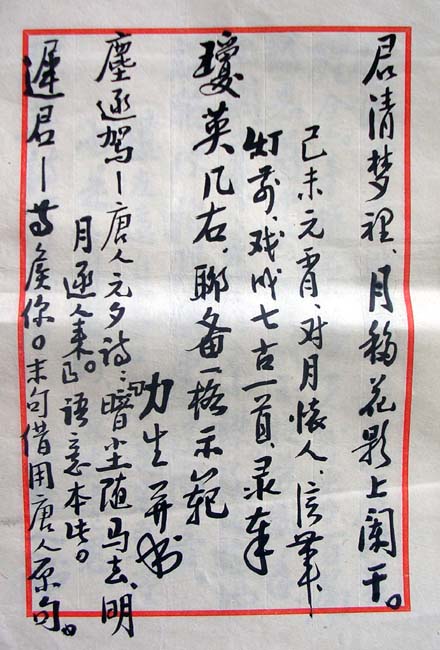 君清梦裡、月移花影上阑干。
己未元宵、对月懷人、信笔、
灯前、戏成七古一首、录奉
瓊英几右、聊备一格示範
力生并书
塵逐驾—唐人元夕诗：“暗尘随马去、明
月逐人来”语意本此。
遲君—等候你。末句借用唐人原句。